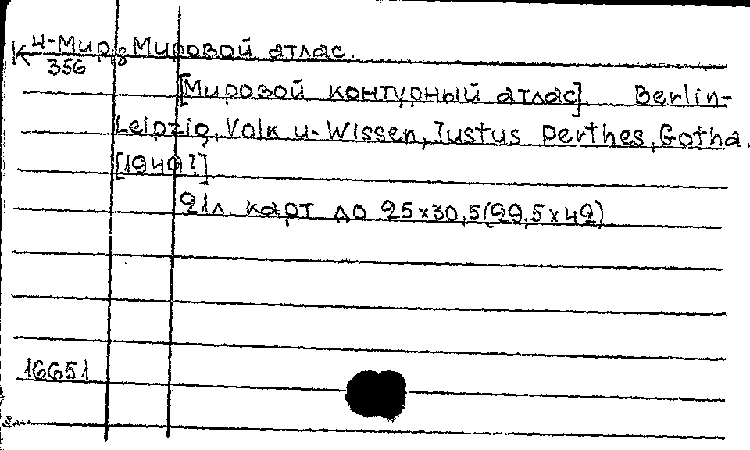 К 4-Мир₃ Мировой атлас.
356
[Мировой контурный атлас] Berlin-
Leipzig, Volk u. Wissen, Justus Perthes, Gotha.
[1949?]
21л. карт до 25x30,5(29,5x42)
16651